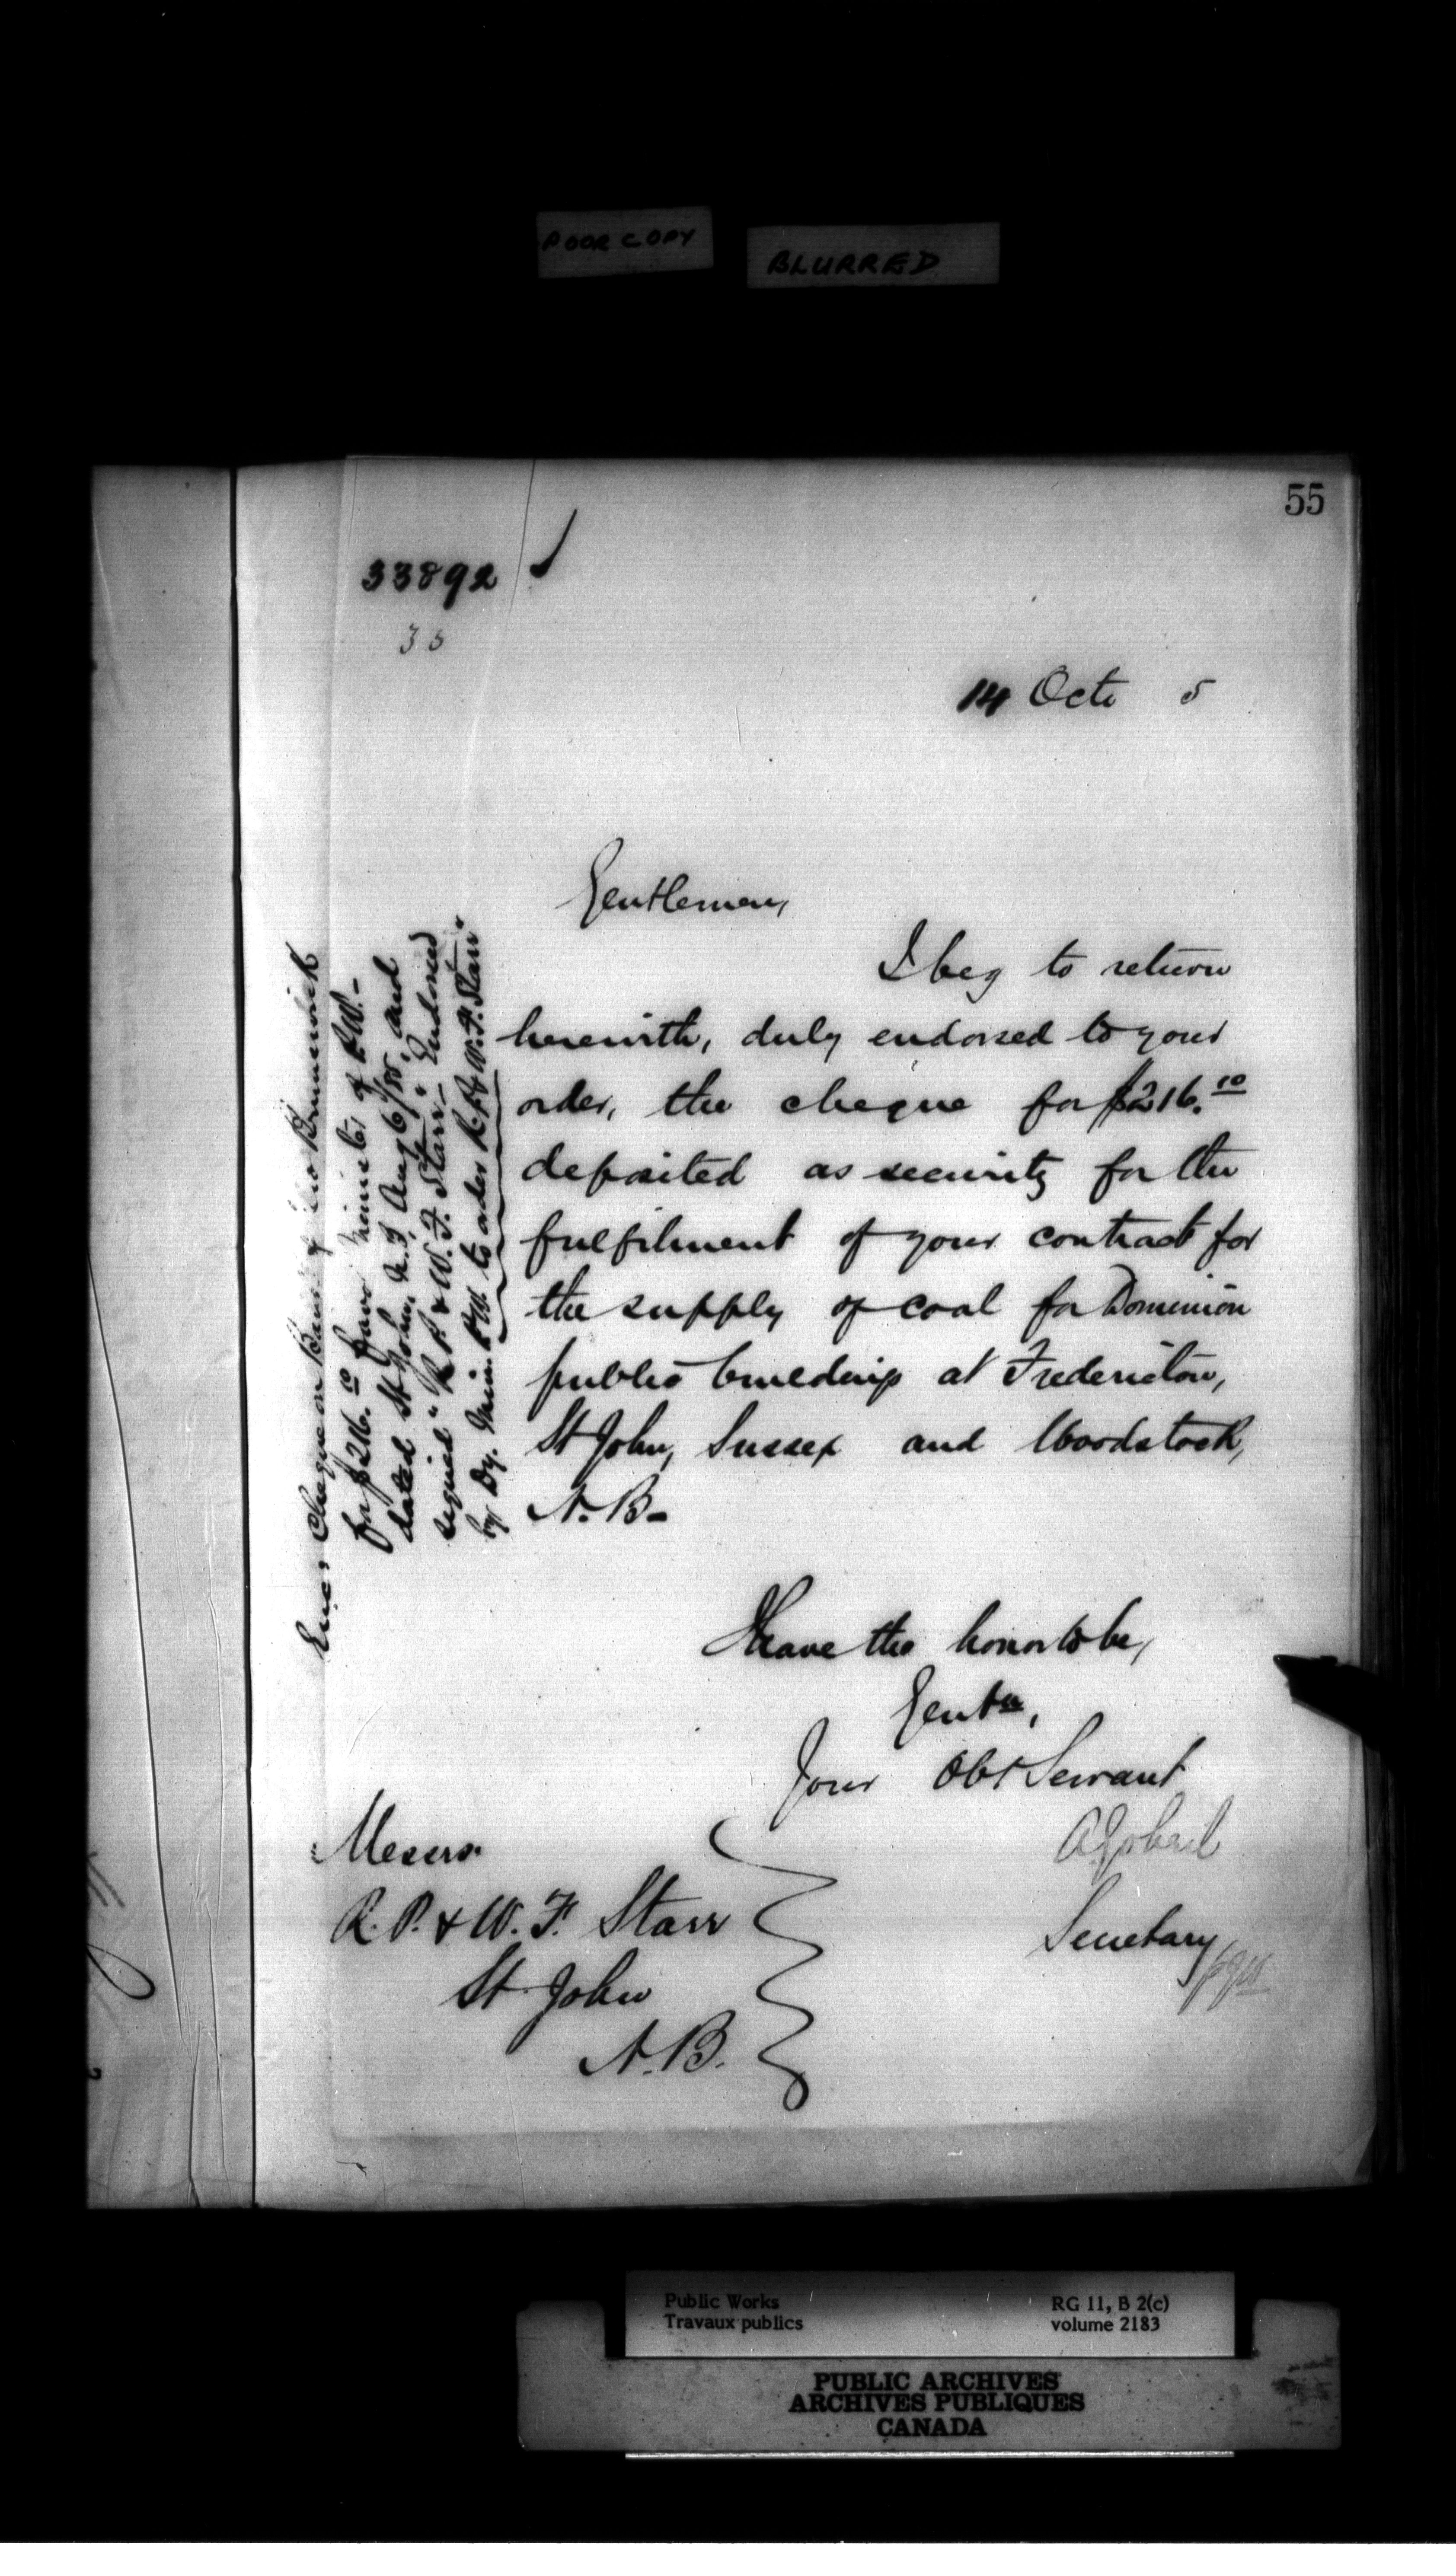 POOR COPY
BLURRED
55
33892
35
14 Octr 5
Gentlemen,
I beg to return
herewith, duly endorsed to your
order, the cheque for $216.10
deposited as security for the
fulfilment of your contract for
the supply of coal for Dominion
public buildings at Fredericton,
St John, Sussex and Woodstock,
N.B-
I have the honor to be,
Gentn,
Your Obt Servant
AGobeil
Secretary
Messrs.
R. P. & W. F. Starr
St. John
N.B.
Enc: Cheque on Bank of New Brunswick
for $216.10 favor Minister of P.W.-
dated St John, N.B. Aug 6/85, and
signed "R. P. & W. F. Starr". Endorsed
by Dy. Min. P.W. to order R.P. & W.F. Starr"
Public Works
Travaux publics
RG 11, B 2(c)
volume 2183
PUBLIC ARCHIVES
ARCHIVES PUBLIQUES
CANADA